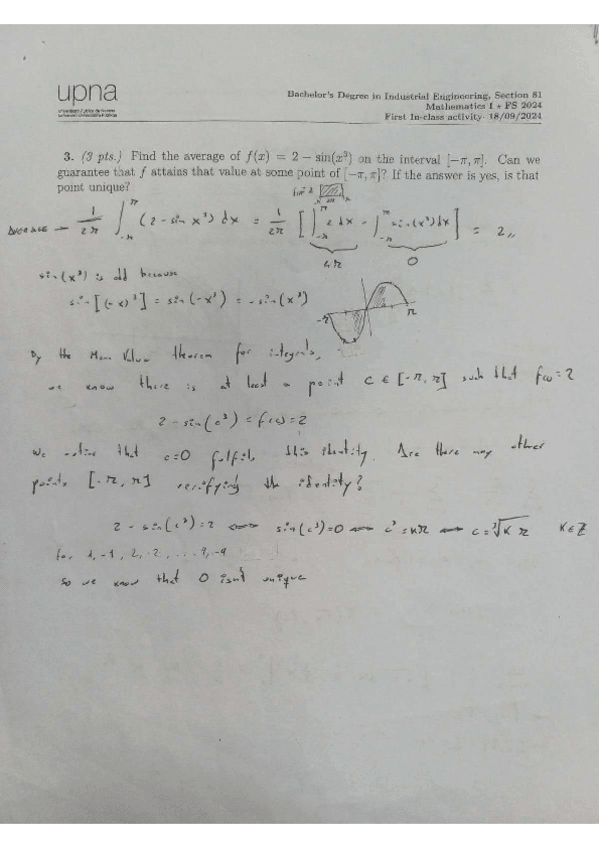 upna
Bachelor's Degree in Industrial Engineering, Section 81
Mathematics I • FS 2024
First In-class activity. 18/09/2024
3. (3 pts.) Find the average of f(x) = 2 − sin(x³) on the interval [−π, π]. Can we
guarantee that f attains that value at some point of [−π, π]? If the answer is yes, is that
point unique?
Average → 1/2π ∫_{-π}^{π} (2 - sin x³) dx = 1/2π [ ∫_{-π}^{π} 2 dx - ∫_{-π}^{π} sin(x³) dx ] = 2,,
4π 0
sin(x³) is odd because
sin[(-x)³] = sin(-x³) = -sin(x³)
-π π
By the Mean Value theorem for integrals,
we know there is at least a point c ∈ [-π, π] such that f(c) = 2
2 - sin(c³) = f(c) = 2
We notice that c=0 fulfils this identity. Are there any other
points [-π, π] verifying the identity?
2 - sin(c³) = 2 ⟺ sin(c³) = 0 ⟺ c³ = kπ ⟺ c = ∛(kπ) k∈Z
for 1, -1, 2, -2, ... 9, -9
So we know that 0 isn't unique